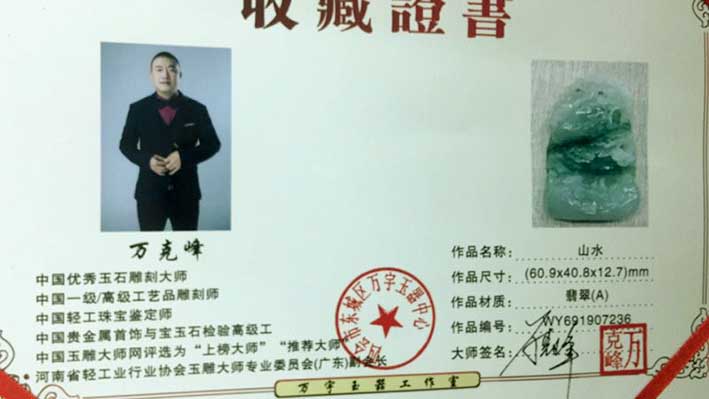 收藏證書
万克峰
中国优秀玉石雕刻大师
中国一级/高级工艺品雕刻师
中国轻工珠宝鉴定师
中国贵金属首饰与宝玉石检验高级工
中国玉雕大师网评选为“上榜大师”“推荐大师”
河南省轻工业行业协会玉雕大师专业委员会(广东)副会长
作品名称: 山水
作品尺寸: (60.9x40.8x12.7)mm
作品材质: 翡翠(A)
作品编号: WY691907236
大师签名:
万克峰
四会市东城区万宇玉器中心
万宇玉器工作室